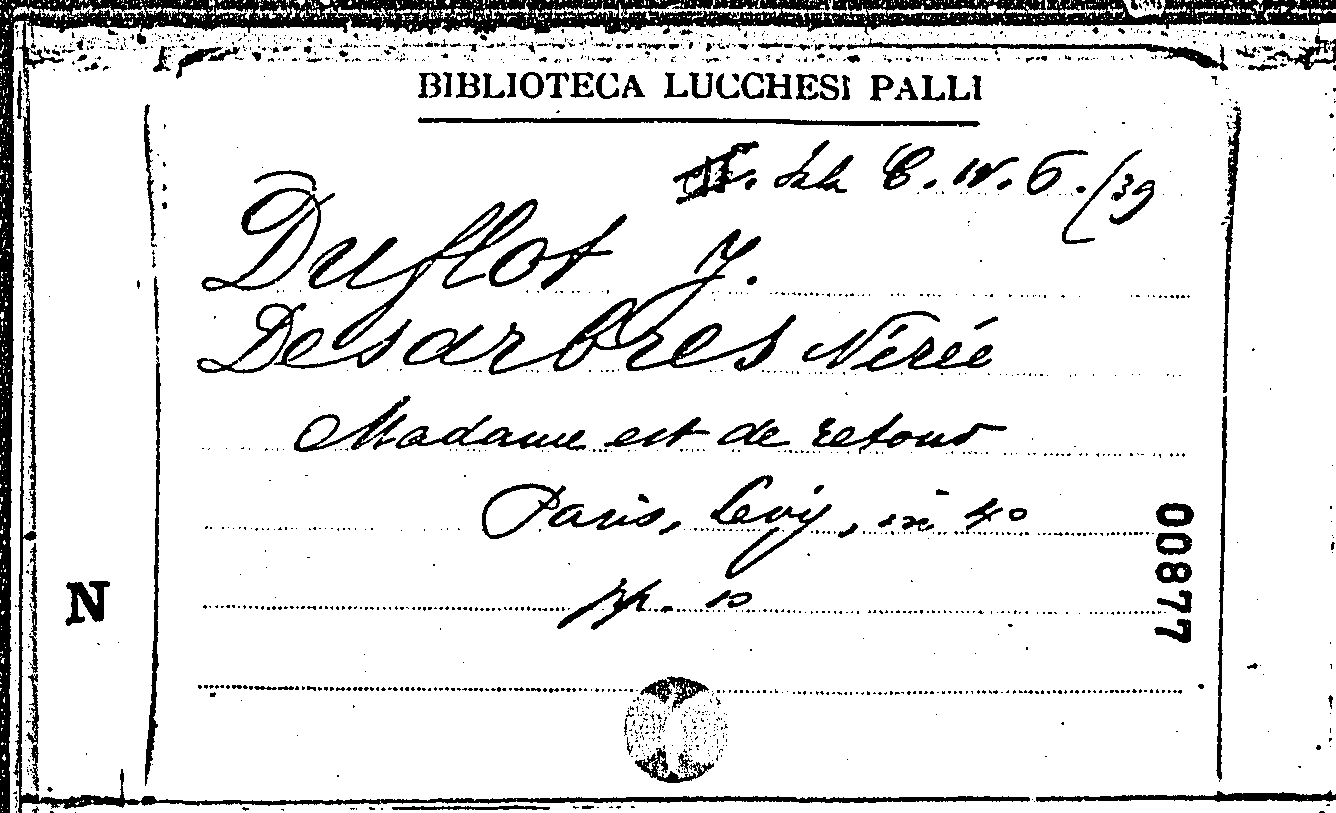 BIBLIOTECA LUCCHESI PALLI
C. IV. 6. /39
Duflot J.
Desarbres Nérée
Madame est de retour
Paris, Levy, in 4º
pp. 10
00877
N